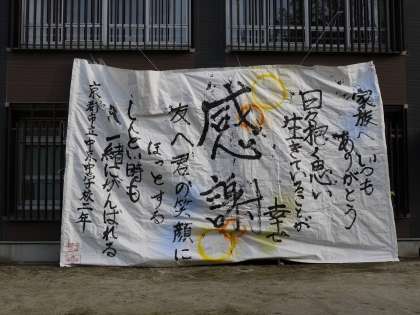 家族へ
いつも
ありがとう
思い
生きていることが
幸せ
感謝
友へ君の笑顔に
ほっとする
しんどい時も
一緒にがんばれる
京都市立中京中学校